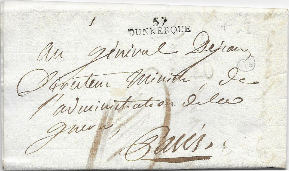 57
DUNKERQUE
au général Dejean
Directeur Ministre de
l'administration de la
guerre,
Paris.